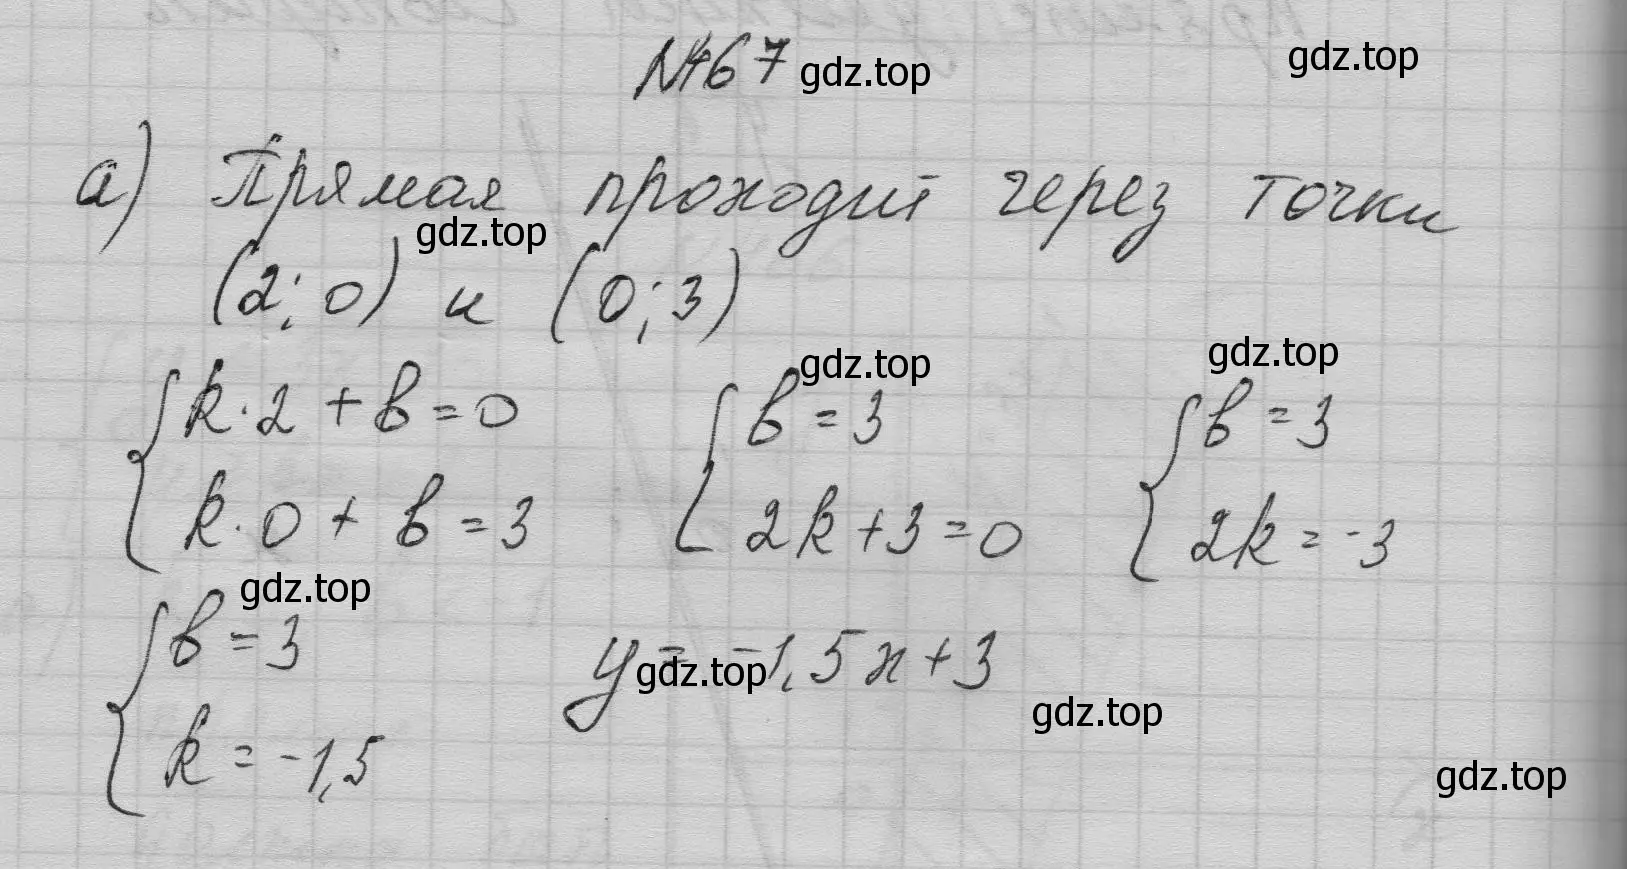 №467 gdz.top gdz.top
а) Прямая проходит через точки
gdz.top
(2; 0) и (0; 3)
gdz.top gdz.top
k·2 + b = 0 b = 3 b = 3
k·0 + b = 3 2k + 3 = 0 2k = -3
gdz.top
b = 3 y = -1,5x + 3
gdz.top gdz.top
k = -1,5
gdz.top